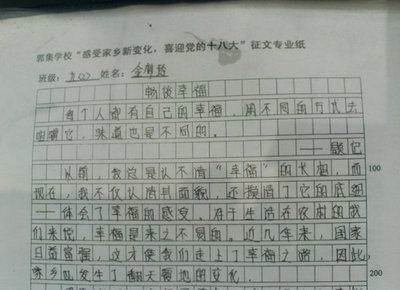 郭集学校“感受家乡新变化，喜迎党的十八大”征文专业纸
班级：九(2) 姓名：
畅谈幸福
每个人都有自己的幸福，用不同的方式去
咀嚼它，味道也是不同的。
——题记
从前，我总是认不清“幸福”的长相，而
100
现在，我不仅认清其面貌，还摸清了它的底细
——体会了幸福的感受。在于生活在农村的我
们来说，幸福是来之不易的。近几年来，国家
日益富强，这才使我们走上了幸福之路，因此，
家乡也发生了翻天覆地的变化。
200